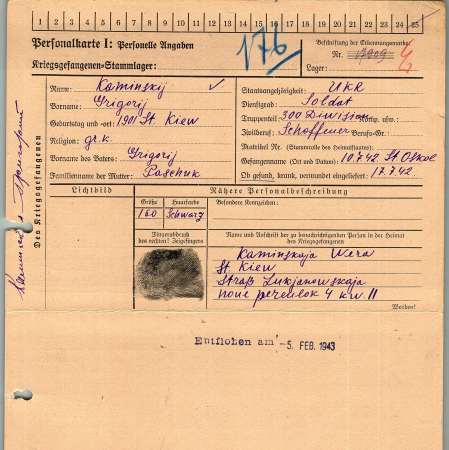 1 2 3 4 5 6 7 8 9 10 11 12 13 14 15 16 17 18 19 20 21 22 23 24 25
Personalkarte I: Personelle Angaben
176
Beschriftung der Erkennungsmarke
Kriegsgefangenen-Stammlager:
Nr.
Lager:
Des Kriegsgefangenen
Name: Kaminskij
Vorname: Grigorij
Geburtstag und -ort: 1901 St. Kiew
Religion: gr.k.
Vorname des Vaters: Grigorij
Familienname der Mutter: Paschuk
Staatsangehörigkeit: UKR
Dienstgrad: Soldat
Truppenteil: 300 Division Komp. usw.:
Zivilberuf: Schoffeuer Berufs-Gr.:
Matrikel Nr. (Stammrolle des Heimatstaates):
Gefangennahme (Ort und Datum): 10.7.42 St. Oskol
Ob gesund, krank, verwundet eingeliefert: 17.7.42
Lichtbild
Nähere Personalbeschreibung
Größe
Haarfarbe
Besondere Kennzeichen:
160
Schwarz
Fingerabdruck
des rechten! Zeigefingers
Name und Anschrift der zu benachrichtigenden Person in der Heimat
des Kriegsgefangenen
Kaminskaja Wera
St. Kiew
Straß Lukjanowskaja
4 kw 11
Wenden!
Entflohen am -5. FEB. 1943